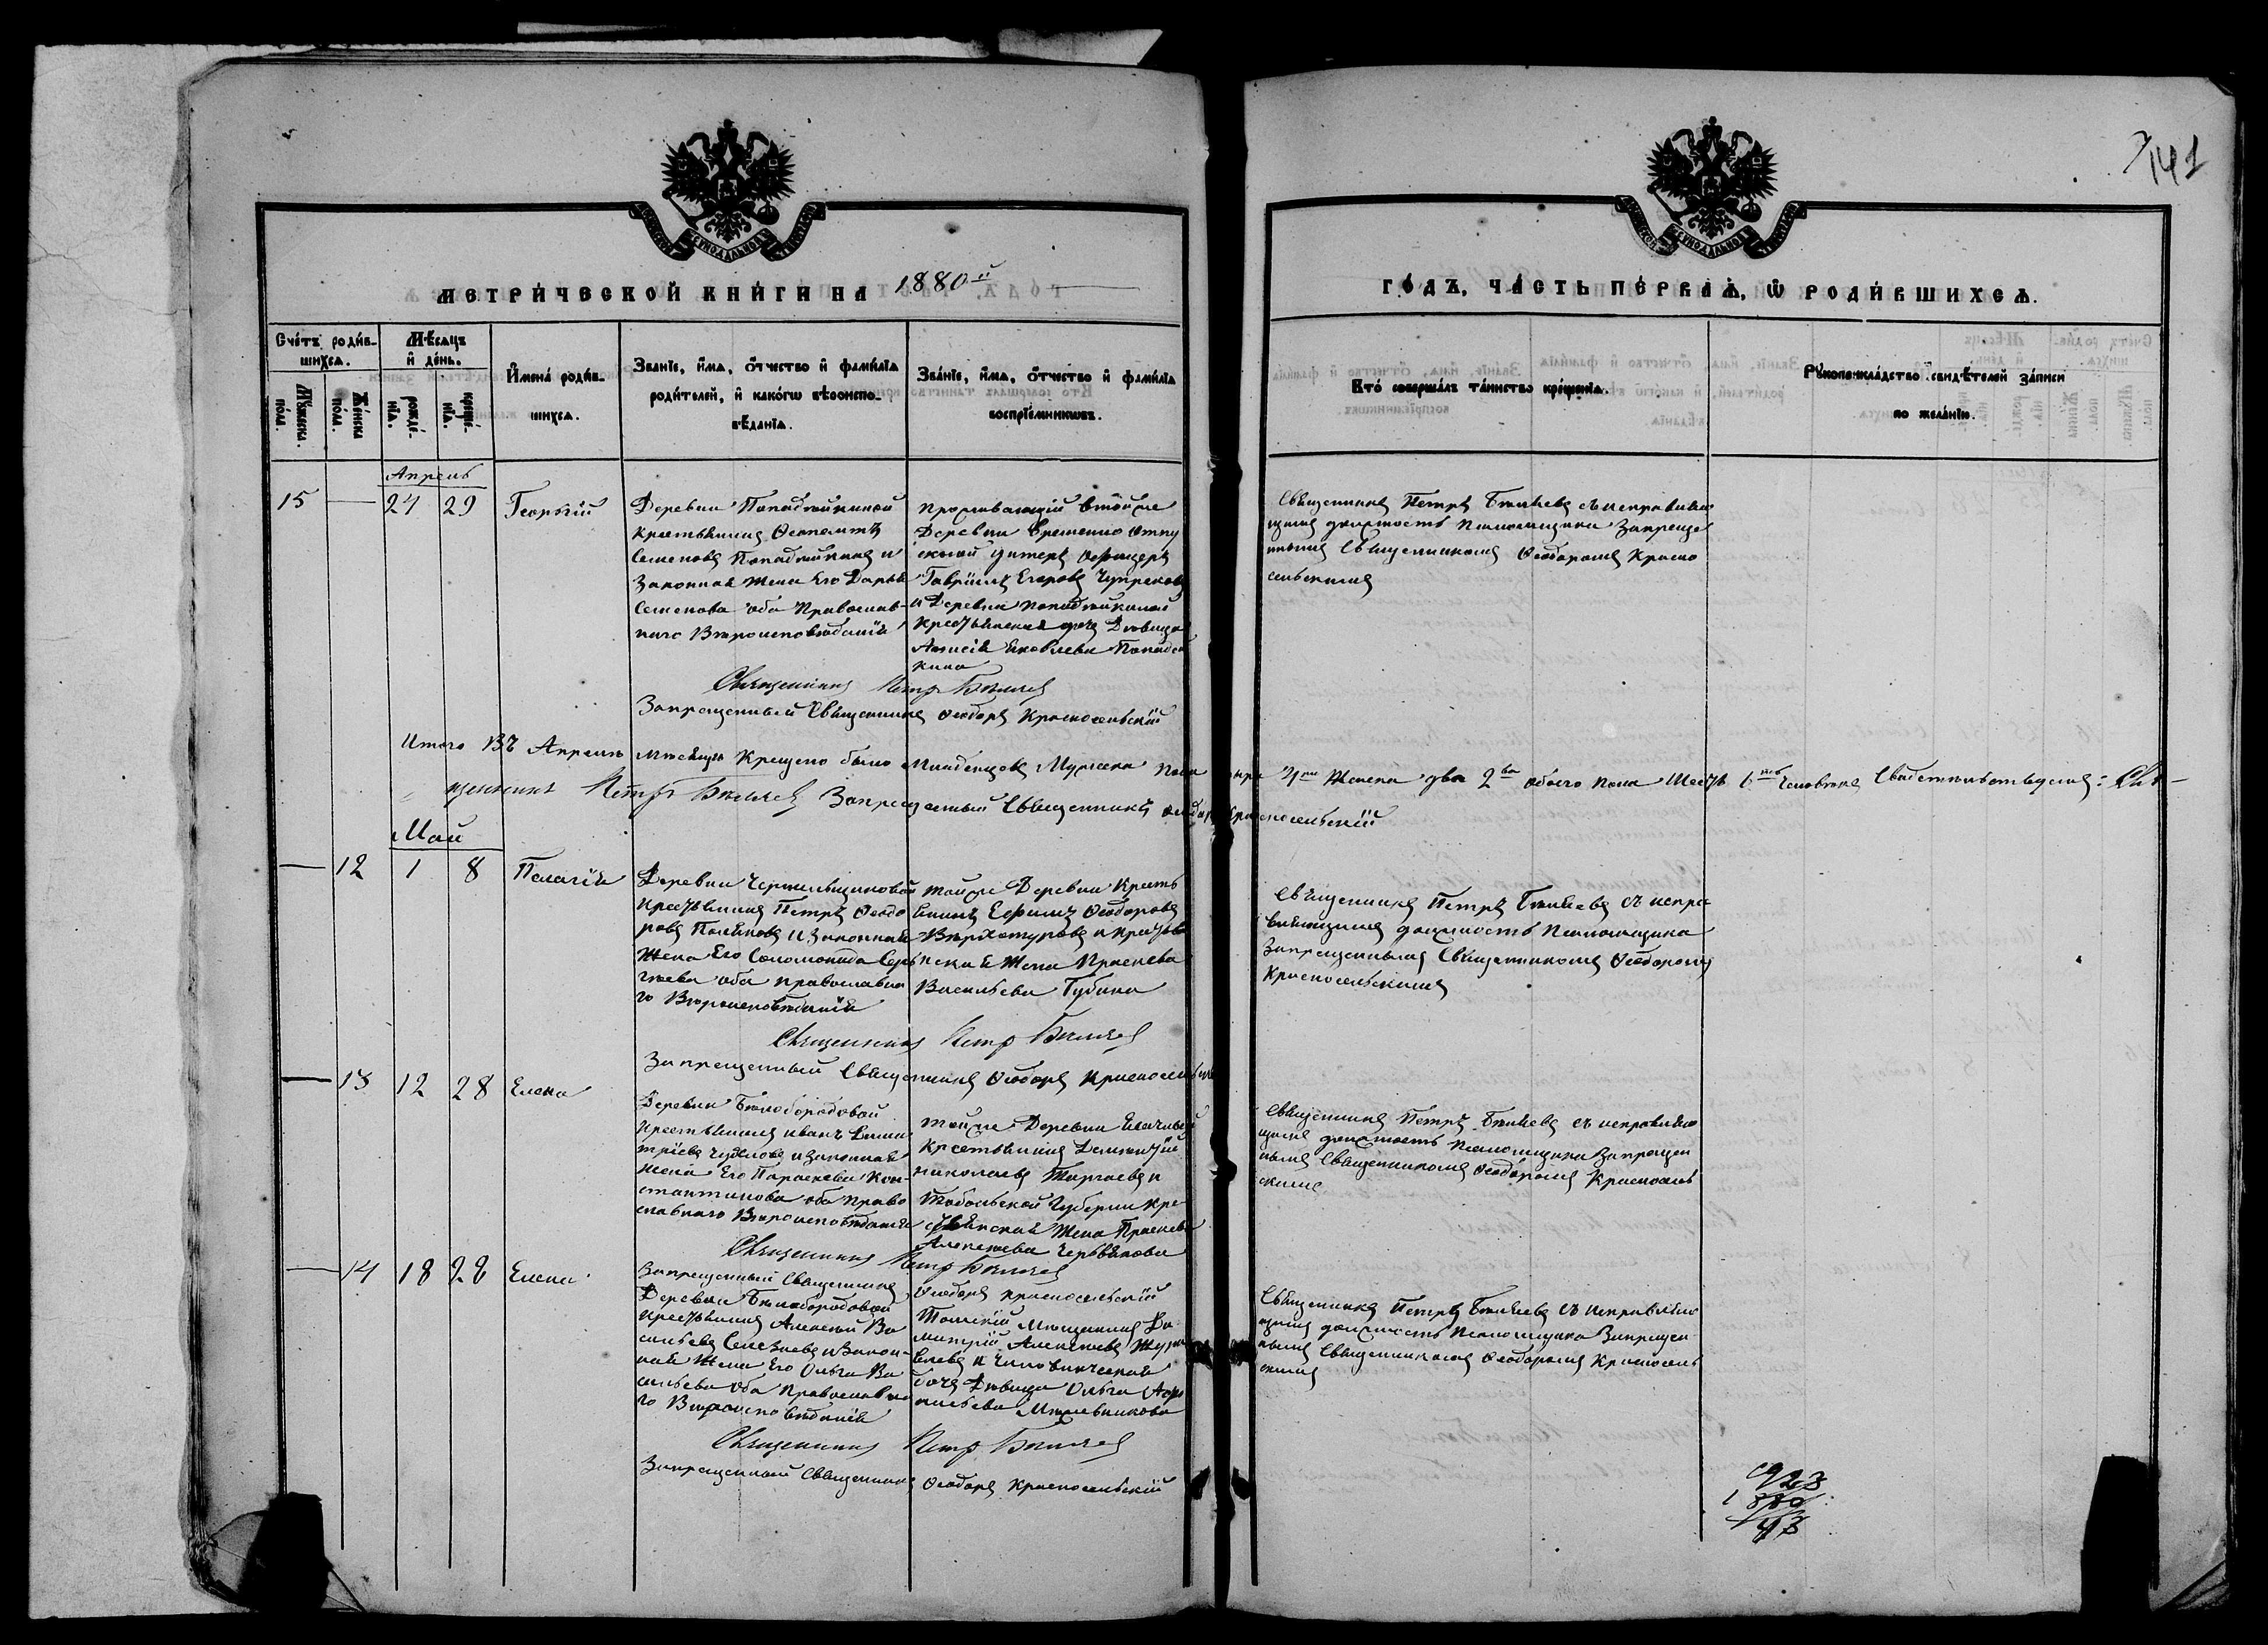 141
МЕТРИЧЕСКОЙ КНИГИ НА 1880й
ГОДЪ, ЧАСТЬ ПЕРВАЯ, Ѡ РОДИВШИХСЯ.
Счетъ родив-
шихся.
Мужеска
пола.
Женска
пола.
Мѣсяцъ
и день.
рожде-
нія.
креще-
нія.
Имена родив-
шихся.
Званіе, имя, отчество и фамилія
родителей, и какогѡ вѣроиспо-
вѣданія.
Званіе, имя, отчество и фамилія
воспріемниковъ.
Кто совершалъ таинство крещенія.
Рукоприкладство свидѣтелей записи
по желанію.
Апрель
15 — 24 29 Георгій
Деревни Попадѣйкиной
крестьянинъ
Семеновъ Попадѣйкинъ и
Законная Жена Его Дарья
Семенова оба Православ-
наго Вѣроисповѣданія
проживающій въ той же
Деревни Временно Отпу
скной Унтеръ Офицеръ
Гавріилъ Егоровъ
и Деревни Попадѣйкиной
Крестьянская дочь Дѣвица
Анисія Яковлева Попадѣй
кина
Священникъ Петръ Бѣляевъ съ исправляю
щимъ должность Псаломщика Запрещен
нымъ Священникомъ Ѳеодоромъ Красно
сельскимъ
Священникъ Петръ Бѣляевъ
Запрещенный Священникъ Ѳеодоръ Красносельскій
Итого Въ Апрелѣ мѣсяцѣ Крещено было Младенцевъ Мужска пола 4ре Женска два 2ва обоего пола Шесть 6ть человѣкъ Свидетельствуемъ: Свя-
щенникъ Петръ Бѣляевъ Запрещенный Священникъ Ѳеодоръ Красносельскій
Май
— 12 1 8 Пелагія
Деревни
Крестьянинъ Петръ Ѳеодо
ровъ Поляковъ и Законная
Жена Его Соломонида Сер
гѣева оба православна
го Вѣроисповѣданія
той же Деревни Кресть
янинъ Ефимъ Ѳеодоровъ
Верхотуровъ и Крестья
нская Жена Праскева
Васильева Губина
Священникъ Петръ Бѣляевъ съ испра
вляющимъ должность Псаломщика
Запрещеннымъ Священникомъ Ѳеодоромъ
Красносельскимъ
Священникъ Петръ Бѣляевъ
Запрещенный Священникъ Ѳеодоръ Красносельскій
— 13 12 28 Елена
Деревни Бѣлобородовой
Крестьянинъ Иванъ Дими
тріевъ и законная
жена Его Параскева Кон-
стантинова оба Право
славнаго Вѣроисповѣданія
той же Деревни
Крестьянинъ Димитрій
Николаевъ и
Тобольской Губерніи Кре
стьянская Жена Праскева
Алексѣева Червякова
Священникъ Петръ Бѣляевъ съ исправляю
щимъ должность Псаломщика Запрещен
нымъ Священникомъ Ѳеодоромъ Красносель
скимъ
Священникъ Петръ Бѣляевъ
Запрещенный Священникъ Ѳеодоръ Красносельскій
— 14 18 28 Елена
Деревни Бѣлобородовой
Крестьянинъ Алексѣй Ва
сильевъ Селезневъ и Закон-
ная Жена Его Ольга Ва
сильева Оба Православна
го Вѣроисповѣданія
Томскій Мѣщанинъ Ди
митрій Алексѣевъ Журав
левъ и Чиновническая
дочь Дѣвица Ольга
Священникъ Петръ Бѣляевъ съ исправляю
щимъ должность Псаломщика Запрещен-
нымъ Священникомъ Ѳеодоромъ Красносель
скимъ
Священникъ Петръ Бѣляевъ
Запрещенный Священникъ Ѳеодоръ Красносельскій
923
1880
43